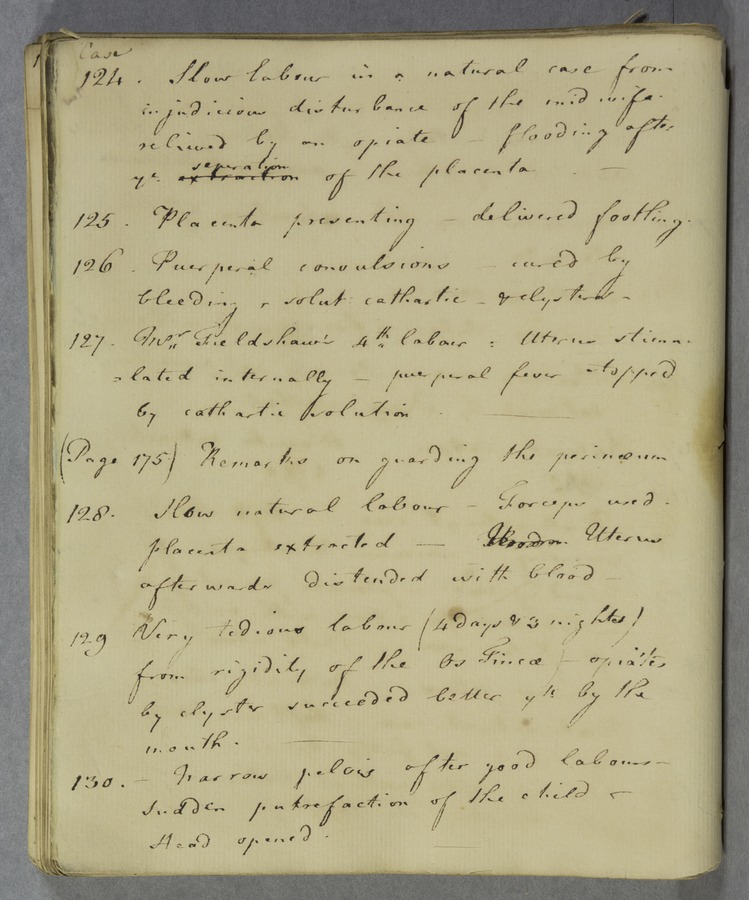 Case
124. Slow labour in a natural case from
injudicious disturbance of the midwife
relieved by an opiate – flooding after
ye extraction separation of the placenta . —
125. Placenta presenting – delivered footling.
126. Puerperal convulsions – cured by
bleeding & solut: cathartic – & clysters –
127. Mrs Fieldshaw's 4th labour : Uterus stimu-
-lated internally – puerperal fever stopped
by cathartic solution . —
(Page 175) Remarks on guarding the perinæum
128. Slow natural labour – Forceps used.
placenta extracted — Uterus
afterwards distended with blood –
129 Very tedious labour (4 days & 3 nights)
from rigidity of the Os Tincæ – opiates
by clyster succeeded better yn by the
mouth. —
130. – Narrow pelvis after good labours –
sudden putrefaction of the child –
Head opened.